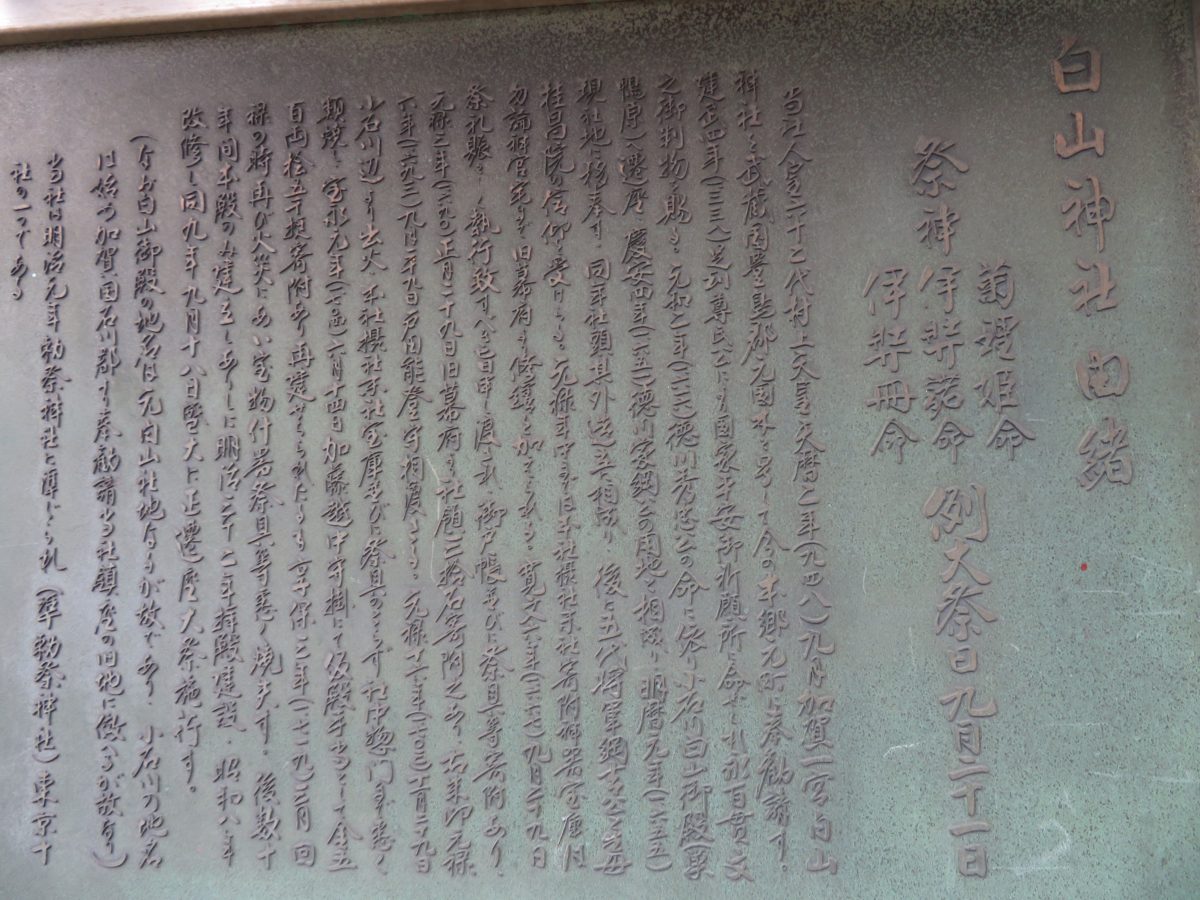 白山神社由緒
祭神 菊理姫命
伊弉諾命
伊弉冊命
例大祭日九月二十一日
当社人皇六十二代村上天皇の天暦二年(九四八)九月加賀一宮白山
神社を武蔵国豊島郡元国木と号して今の本郷元町に奉勧請す。
建武四年(一三三八)足利尊氏公により国家平安御祈願所に命ぜられ永百貫の文
之御判物を賜る。元和二年(一六一六)徳川秀忠公の命に依り小石川白山御殿(巣
鴨原)へ遷座、慶安四年(一六五一)徳川家綱公の用地と相成り明暦元年(一六五五)
現社地に移奉す。同年社頭其外造立相成り、後に五代将軍綱吉公之母
桂昌院の信仰を受けらる。元禄年中までは本社摂社末社寄附神器宝庫は
勿論神官宅まで旧幕府より修繕を加えられる。寛文六年(一六六七)九月二十九日
祭礼賑々しく執行致すべき旨申し渡され、御戸帳並びに祭具等寄附あり、
元禄三年(一六九〇)正月二十九日旧幕府より社領三拾石寄附之あり右朱印元禄
六年(一六九三)九月二十九日戸田能登守相渡さる。元禄十六年(一七〇三)十一月二十九日
小石川辺より出火、本社摂社末社宝庫並びに祭具のこらず社中惣門まで悉く
類焼し宝永元年(一七〇四)六月十四日加藤越中守掛にて仮殿手当として金五
百両拾五千坪寄附あり再建せられたるも享保三年(一七一九)三月 回
禄の時再び火災にあい宝物什器祭具等悉く焼失す。後数十
年間本殿のみ建立しありしに明治二十二年拝殿建設、昭和八年
改修し同九年九月十八日盛大に正遷座大祭施行す。
(なお白山御殿の地名は元白山社地なるが故であり、小石川の地名
は始め加賀国石川郡より奉勧請当社鎮座の旧地に倣へるが故なり)
当社は明治元年勅祭神社に準じられ(準勅祭神社)東京十
社の一つである